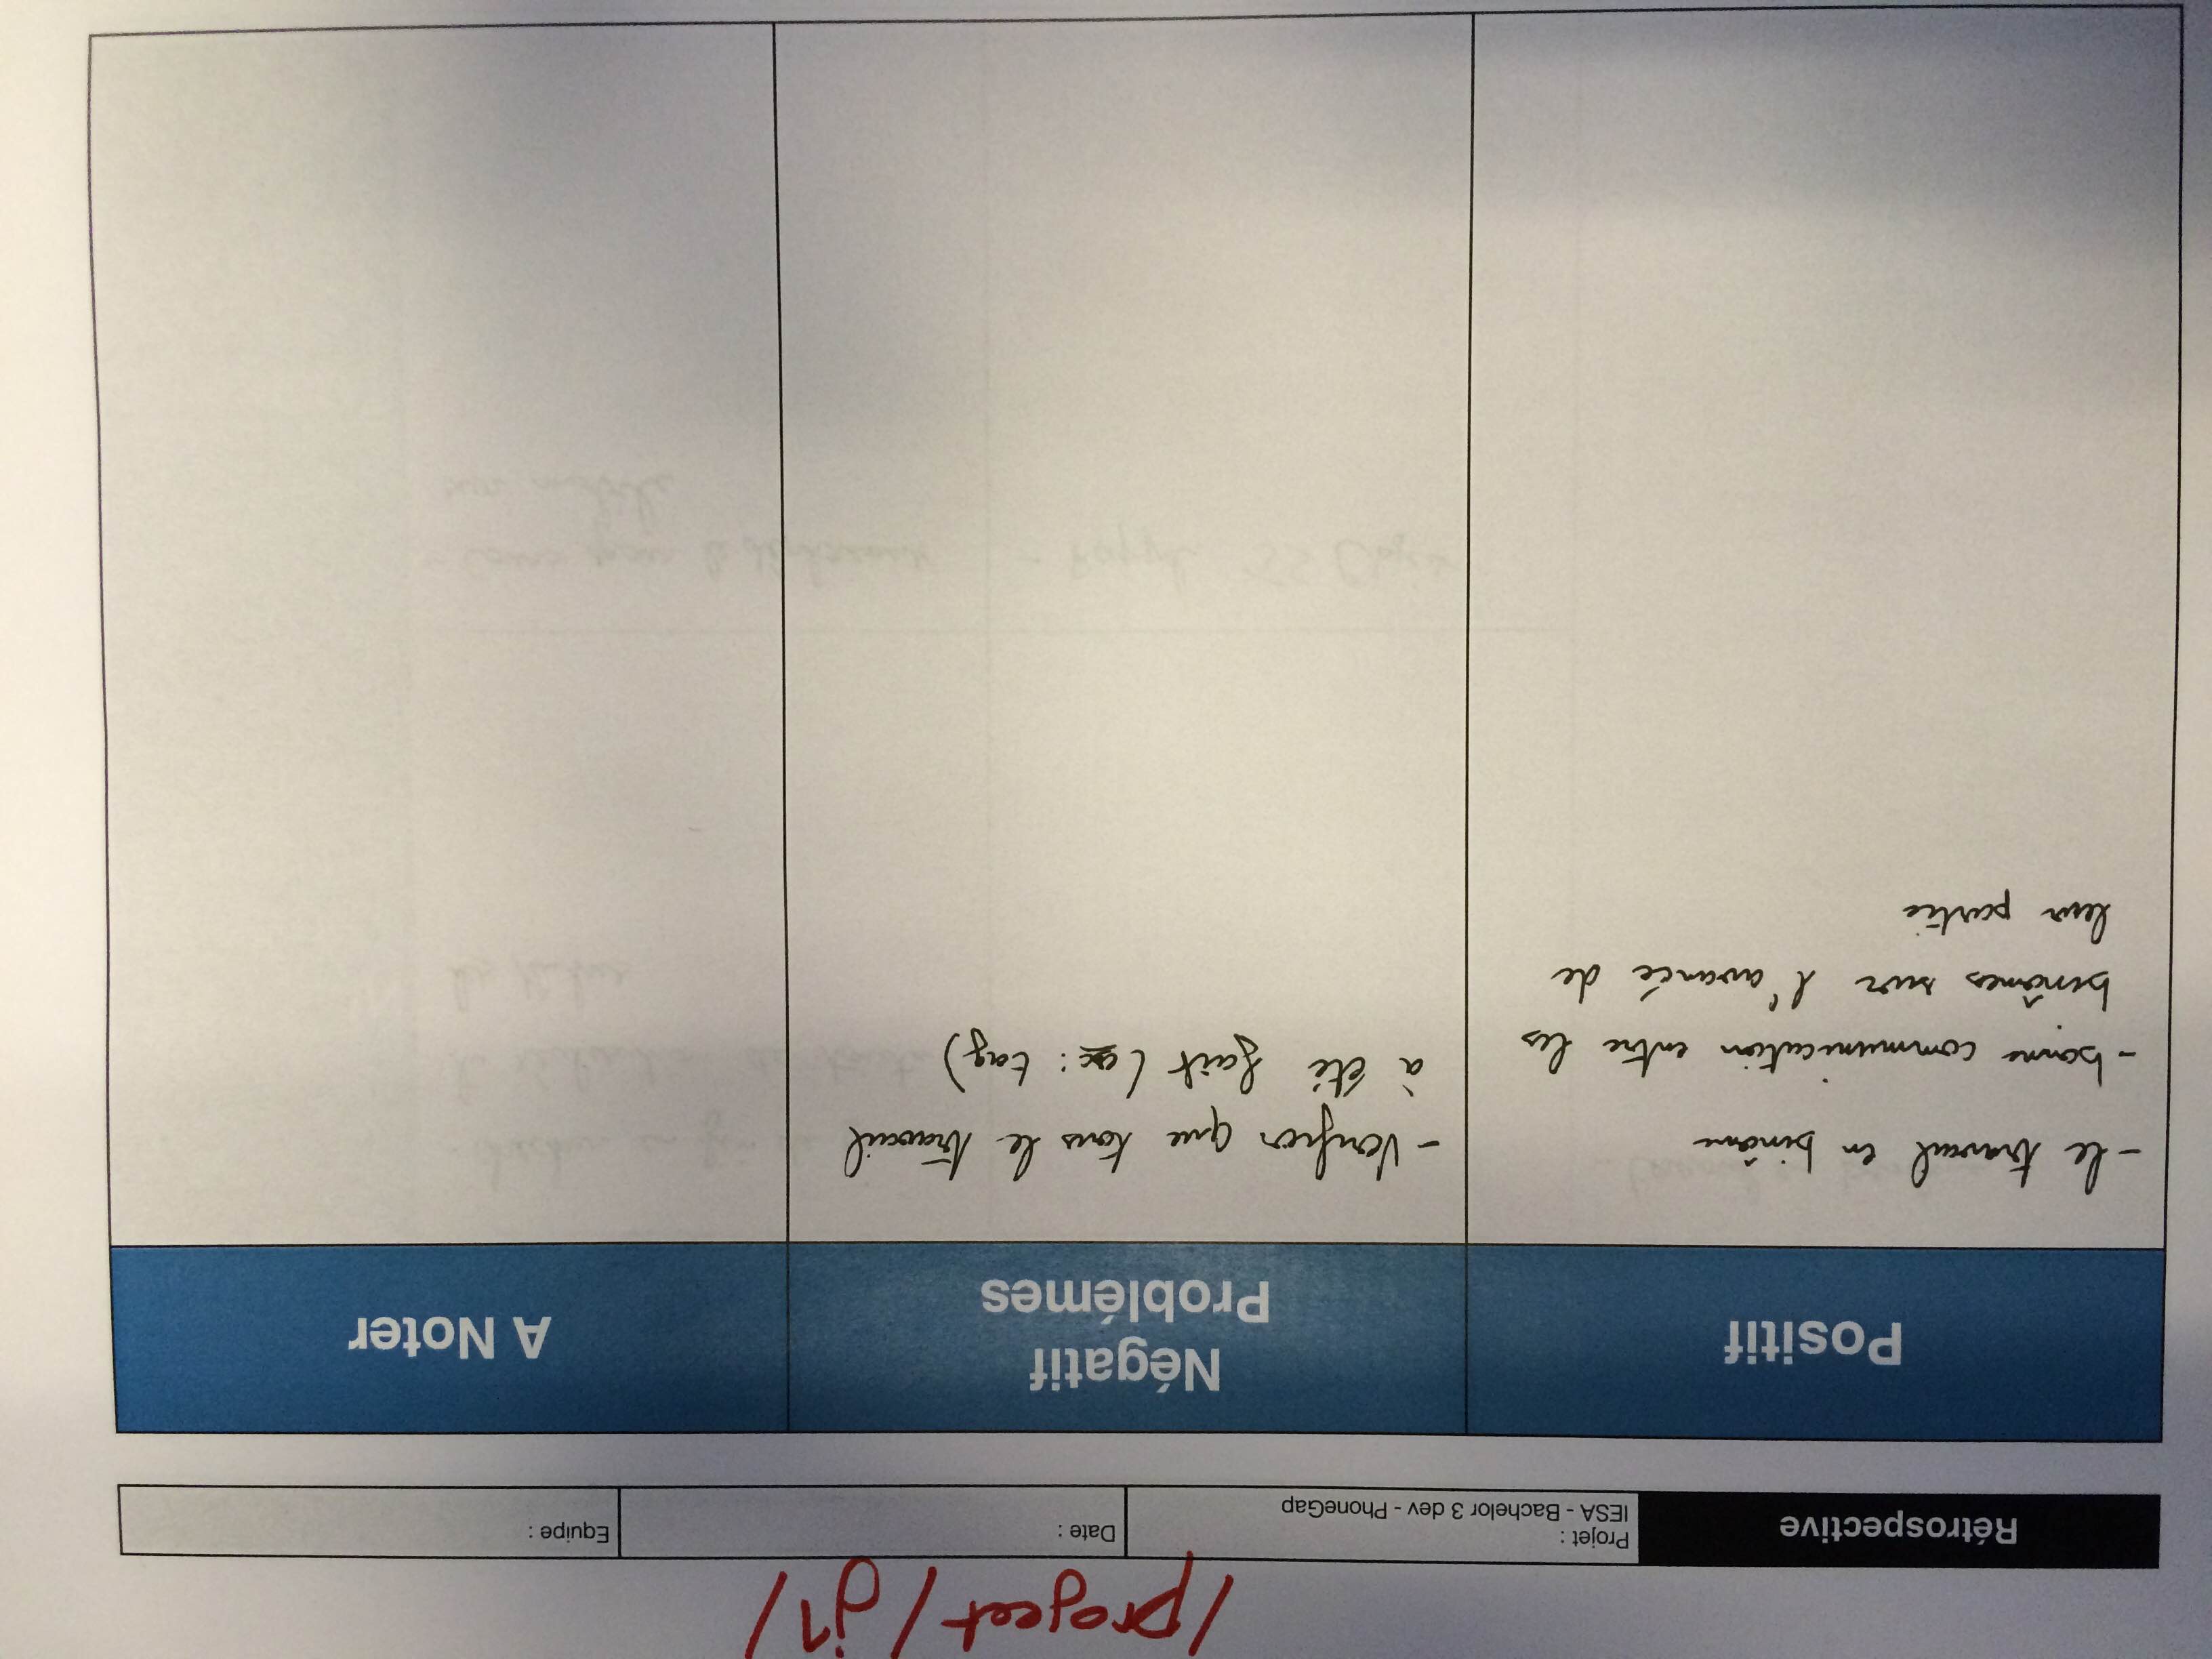 /project/j1/
Rétrospective
Projet :
IESA - Bachelor 3 dev - PhoneGap
Date :
Equipe :
Positif
Négatif
Problémes
A Noter
- le travail en binôme
- bonne communication entre les
binômes sur l'avancé de
leur partie
- Verifier que tous le travail
à été fait (ex : tag)